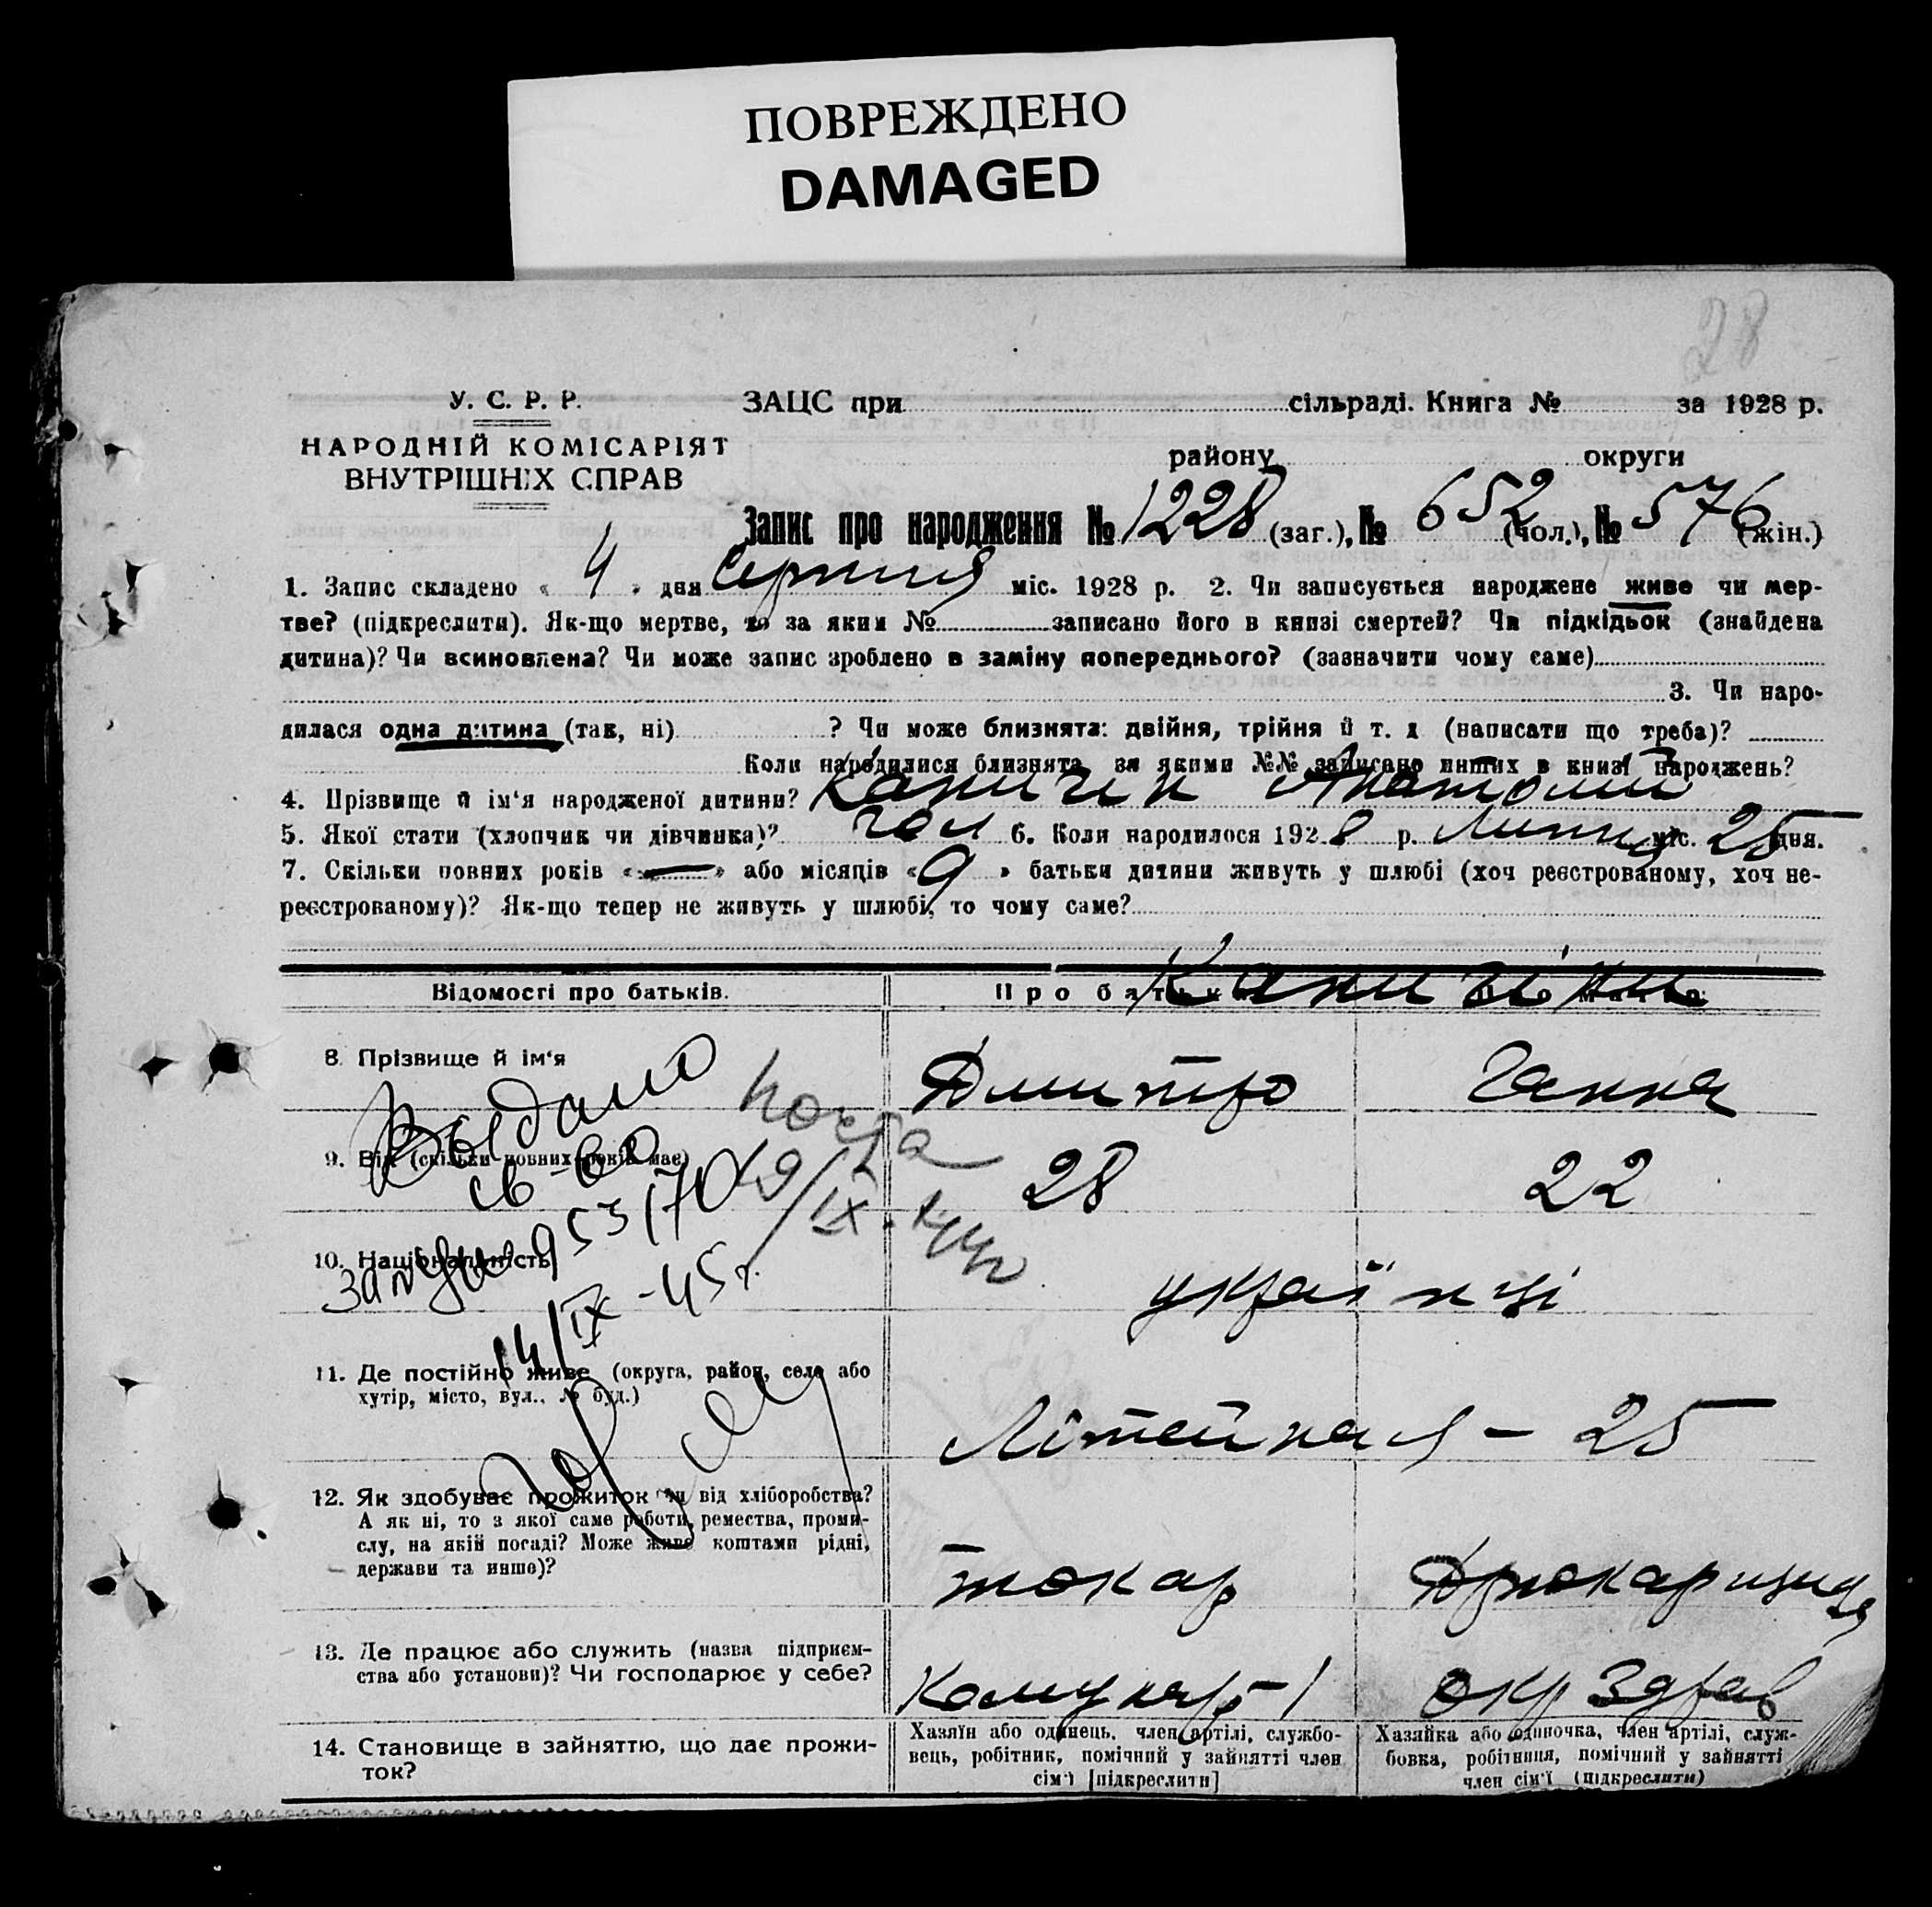 ПОВРЕЖДЕНО
DAMAGED
28
У. С. Р. Р.
НАРОДНІЙ КОМІСАРІЯТ
ВНУТРІШНІХ СПРАВ
ЗАЦС при сільраді. Книга № за 1928 р.
району округи
Запис про народження № 1228 (заг.), № 652 (чол.), № 576 (жін.)
1. Запис складено « 4 » дня Серпня міс. 1928 р. 2. Чи записується народжене живе чи мер-
тве? (підкреслити). Як-що мертве, то за яким № записано його в книзі смертей? Чи підкідьок (знайдена
дитина)? Чи всиновлена? Чи може запис зроблено в заміну попереднього? (зазначити чому саме)
3. Чи наро-
дилася одна дитина (так, ні) ? Чи може близнята: двійня, трійня й т. д (написати що треба)?
Коли народилися близнята, за якими №№ записано инших в книзі народжень?
4. Прізвище й ім'я народженої дитини? Каничин Анатолий
5. Якої стати (хлопчик чи дівчинка)? чол 6. Коли народилось 1928 р. Липня міс. 25 дня.
7. Скільки повних років «—» або місяців «9» батьки дитини живуть у шлюбі (хоч реєстрованому, хоч не-
реєстрованому)? Як-що тепер не живуть у шлюбі, то чому саме?
Відомості про батьків. Про батька Про матір
8. Прізвище й ім'я Дмитро Ганна
9. Вік (скільки повних років має) 28 22
10. Національність українці
11. Де постійно живе (округа, район, село або
хутір, місто, вул., № буд.) Літейная - 25
12. Як здобуває прожиток чи від хліборобства?
А як ні, то з якої саме роботи, ремества, проми-
слу, на якій посаді? Може живе коштами рідні,
держави та инше)? токар Друкарщиця
13. Де працює або служить (назва підприєм-
ства або установи)? Чи господарює у себе? Комунар-1 окр Здрав
14. Становище в зайняттю, що дає прожи-
ток?
Хазяїн або одинець, член артілі, службо-
вець, робітник, помічний у зайнятті член
сім'ї [підкреслити]
Хазяйка або одиночка, член артілі, служ-
бовка, робітниця, помічний у зайнятті
член сім'ї (підкреслити)
Выдано
св-во
19/IX-44г
14/IX-45г.